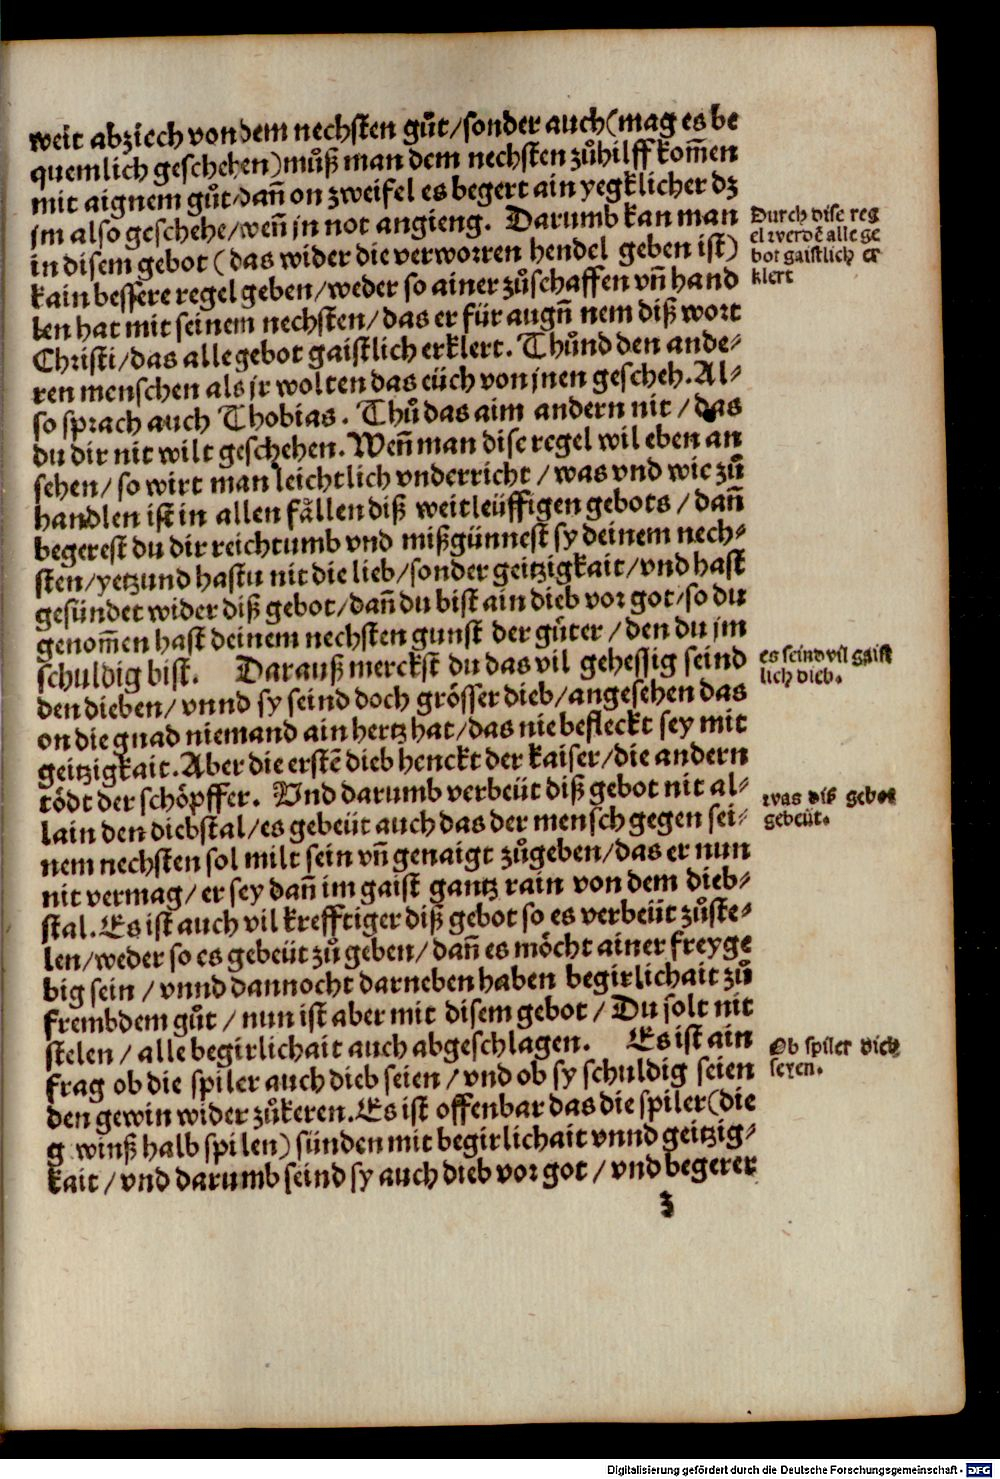 weit abziech von dem nechsten gůt/sonder auch(mag es be
quemlich geschehen)můß man dem nechsten zůhilff kom̃en
mit aignem gůt/dañ on zweifel es begert ain yegklicher dz
jm also geschehe/weñ jn not angieng. Darumb kan man
in disem gebot (das wider die verworren hendel geben ist)
kain bessere regel geben/weder so ainer zůschaffen vñ hand
len hat mit seinem nechsten/das er für augñ nem diß wort
Christi/das alle gebot gaistlich erklert. Thůnd den ande-
ren menschen als jr wolten das eüch von jnen gescheh. Al-
so sprach auch Thobias. Thů das aim andern nit / das
du dir nit wilt geschehen. Weñ man dise regel wil eben an
sehen/ so wirt man leichtlich vnderricht / was vnd wie zů
handlen ist in allen fällen diß weitleüffigen gebots / dañ
begerest du dir reichtumb vnd mißgünnest sy deinem nech-
sten/yetzund hastu nit die lieb/sonder geitzigkait/vnd hast
gesündet wider diß gebot/dañ du bist ain dieb vor got/so du
genom̃en hast deinem nechsten gunst der gůter / den du jm
schuldig bist. Darauß merckst du das vil gehessig seind
den dieben/ vnnd sy seind doch grösser dieb/angesehen das
on die gnad niemand ain hertz hat/das nie befleckt sey mit
geitzigkait. Aber die erstẽ dieb henckt der kaiser/die andern
tödt der schöpffer. Vnd darumb verbeüt diß gebot nit al-
lain den diebstal/es gebeüt auch das der mensch gegen sei-
nem nechsten sol milt sein vñ genaigt zůgeben/das er nun
nit vermag/er sey dañ im gaist gantz rain von dem dieb-
stal. Es ist auch vil krefftiger diß gebot so es verbeüt zůste-
len/weder so es gebeüt zů geben/dañ es möcht ainer freyge
big sein / vnnd dannocht darneben haben begirlichait zů
frembdem gůt / nun ist aber mit disem gebot / Du solt nit
stelen / alle begirlichait auch abgeschlagen. Es ist ain
frag ob die spiler auch dieb seien / vnd ob sy schuldig seien
den gewin wider zůkeren. Es ist offenbar das die spiler(die
g winß halb spilen) sünden mit begirlichait vnnd geitzig-
kait / vnd darumb seind sy auch dieb vor got / vnd begerer
z
Durch dise reg
el werdẽ alle ge
bot gaistlich er
klert
es seind vil gaist
lich dieb.
was diß gebot
gebeüt.
Ob spiler dieb
seyen.
Digitalisierung gefördert durch die Deutsche Forschungsgemeinschaft - DFG